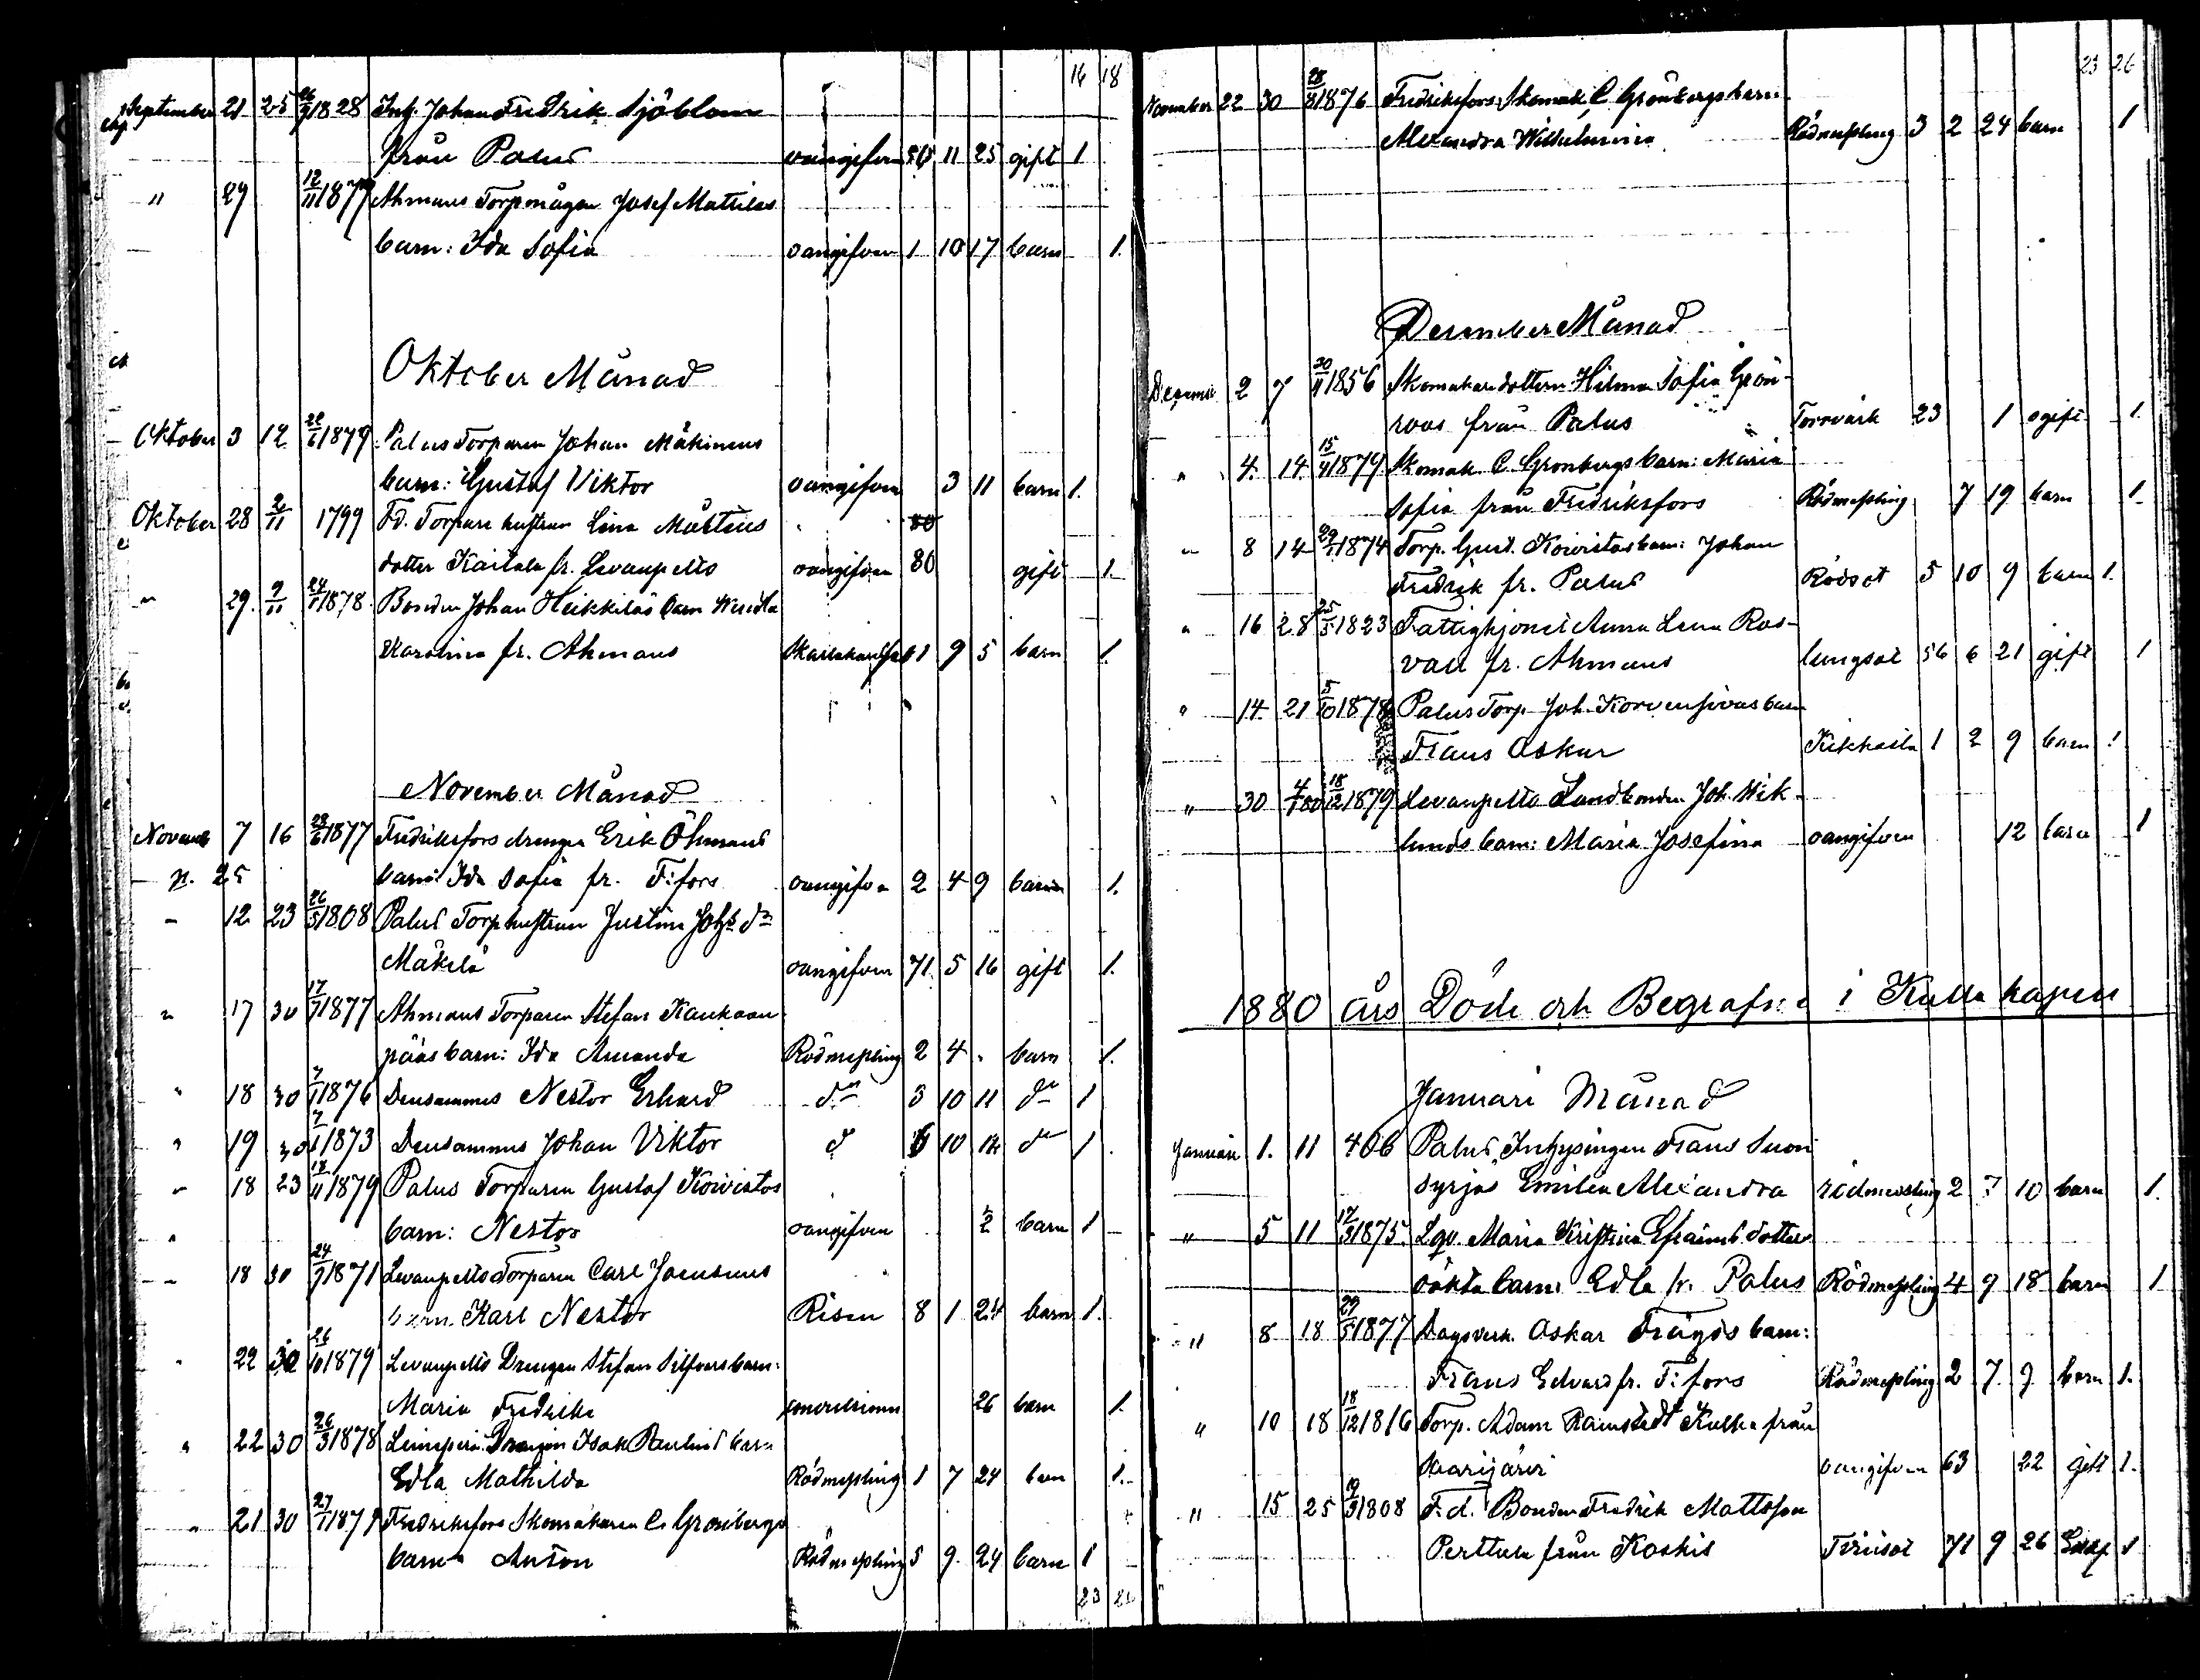 16 18
September 21 25 26/9 1828 Inh. Johan Fredrik Sjöblom
från Palus oangifven 50 11 25 gift 1
" 29 12/11 1877 Ahmaus Torpmågen Josef Mattilas
barn: Ida Sofia oangifven 1 10 17 barn 1.
Oktober Månad
Oktober 3 12 22/6 1879 Palus Torparen Johan Mäkinens
barn: Gustaf Viktor oangifven 3 11 barn 1.
Oktober 28 2/11 1799 Fd. Torpare hustrun Lina Mårtens
dotter Kaitala fr. Levanpelto oangifven 80 gift 1.
" 29. 9/11 24/1 1878 Bonden Johan Heikkiläs barn Wendla
Karolina fr. Ahmaus 1 9 5 barn 1.
November Månad
Novemb 7 16 28/6 1877 Fredriksfors drengen Erik Öhmans
p. 25 barn: Ida Sofia fr. F:fors oangifven 2 4 9 barn 1.
" 12 23 26/5 1808 Palus Torphustrun Justina Johs dr
Mäkelä oangifven 71 5 16 gift 1.
" 17 30 17/7 1877 Ahmaus Torparen Stefan Kankaan
pääs barn: Ida Amanda Rödmessling 2 4 " barn 1.
" 18 30 7/1 1876 Densammes Nestor Erhard do 3 10 11 do 1
" 19 30 7/1 1873 Densammes Johan Viktor do 6 10 12 do 1
" 18 23 18/11 1879 Palus Torparen Gustaf Koivistos
" barn: Nestor oangifven 1/2 barn 1
" 18 30 24/9 1871 Levanpelto Torparen Carl Jansens
barn. Karl Nestor Risen 8 1 24 barn 1.
" 22 30 26/10 1879 Levanpelto Drengen Stefan Silfvers barn:
Maria Fredrika 26 barn 1.
" 22 30 26/3 1878 Drengen Isak Paulins barn
Edla Mathilda Rödmessling 1 7 24 barn 1.
" 21 30 27/1 187 Fredriksfors Skomakaren C. Grönbergs
barn Anton Rödmessling 5 9 24 barn 1
23
23 26
November 22 30 28/8 1876 Fredriksfors Skomak. C Grönbergs barn
Alexandra Wilhelmina Rödmessling 3 2 24 barn 1
December Månad
Decemb 2 7 30/11 1856 Skomakaredottern Hilma Sofia Grön-
roos från Palus Torrvärk 23 1 ogift 1.
" 4. 14. 15/4 1879 Skomak. C. Gronbergs barn: Maria
Sofia från Fredriksfors Rödmessling 7 19 barn 1.
" 8 14 29/1 1874 Torp. Gust. Koivistos barn: Johan
Fredrik fr. Palus Rödsot 5 10 9 barn 1.
" 16 28 25/5 1823 Fattighjonet Anna Lena Ros-
vall fr. Ahmaus lungsot 56 6 21 gift 1
" 14. 21 5/10 1878 Palus Torp. Joh. Korvensivus barn
Frans Oskar Kikhosta 1 2 9 barn 1
" 30 4/1 80 18/12 1879 Levanpelto Landbonden Joh. Wik-
lunds barn: Maria Josefina oangifven 12 barn 1
1880 års Döde och Begrafne i Kulla kapell
Januari Månad
Januari 1. 11 406 Palus, Inhysingen Frans Suon
syrjäs Emilia Alexandra rödmessling 2 7 10 barn 1.
" 5 11 17/3 1875. Lqv. Maria Kristina Efraimsdotters
oäkta barn: Edla fr. Palus Rödmessling 4 9 18 barn 1
" 8 18 29/5 1877 Dagsverk. Oskar Trägös barn:
Frans Edvard fr. F:fors Rödmessling 2 7. 9. barn 1.
" 10 18 18/12 1816 Torp. Adam Ramstedt Kulla från
Saarijärvi oangifven 63 22 gift 1.
" 15 25 19/3 1808 F.d. Bonden Fredrik Mattsson
Perttula från Koskis Tvinsot 71 9 26 Enkl 1